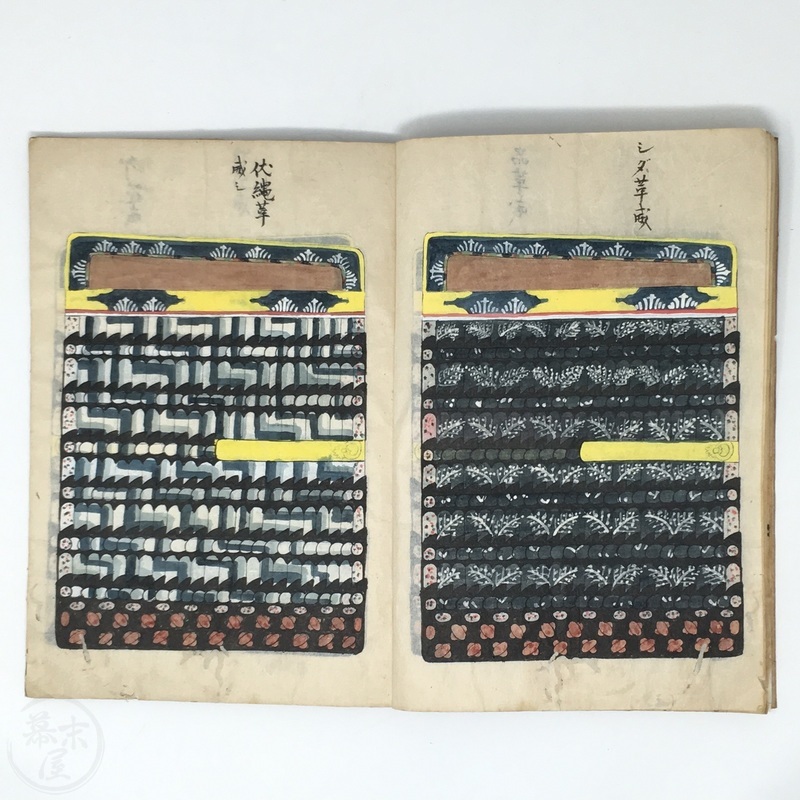 シダ革威
伏縄革
威シ
幕末
屋